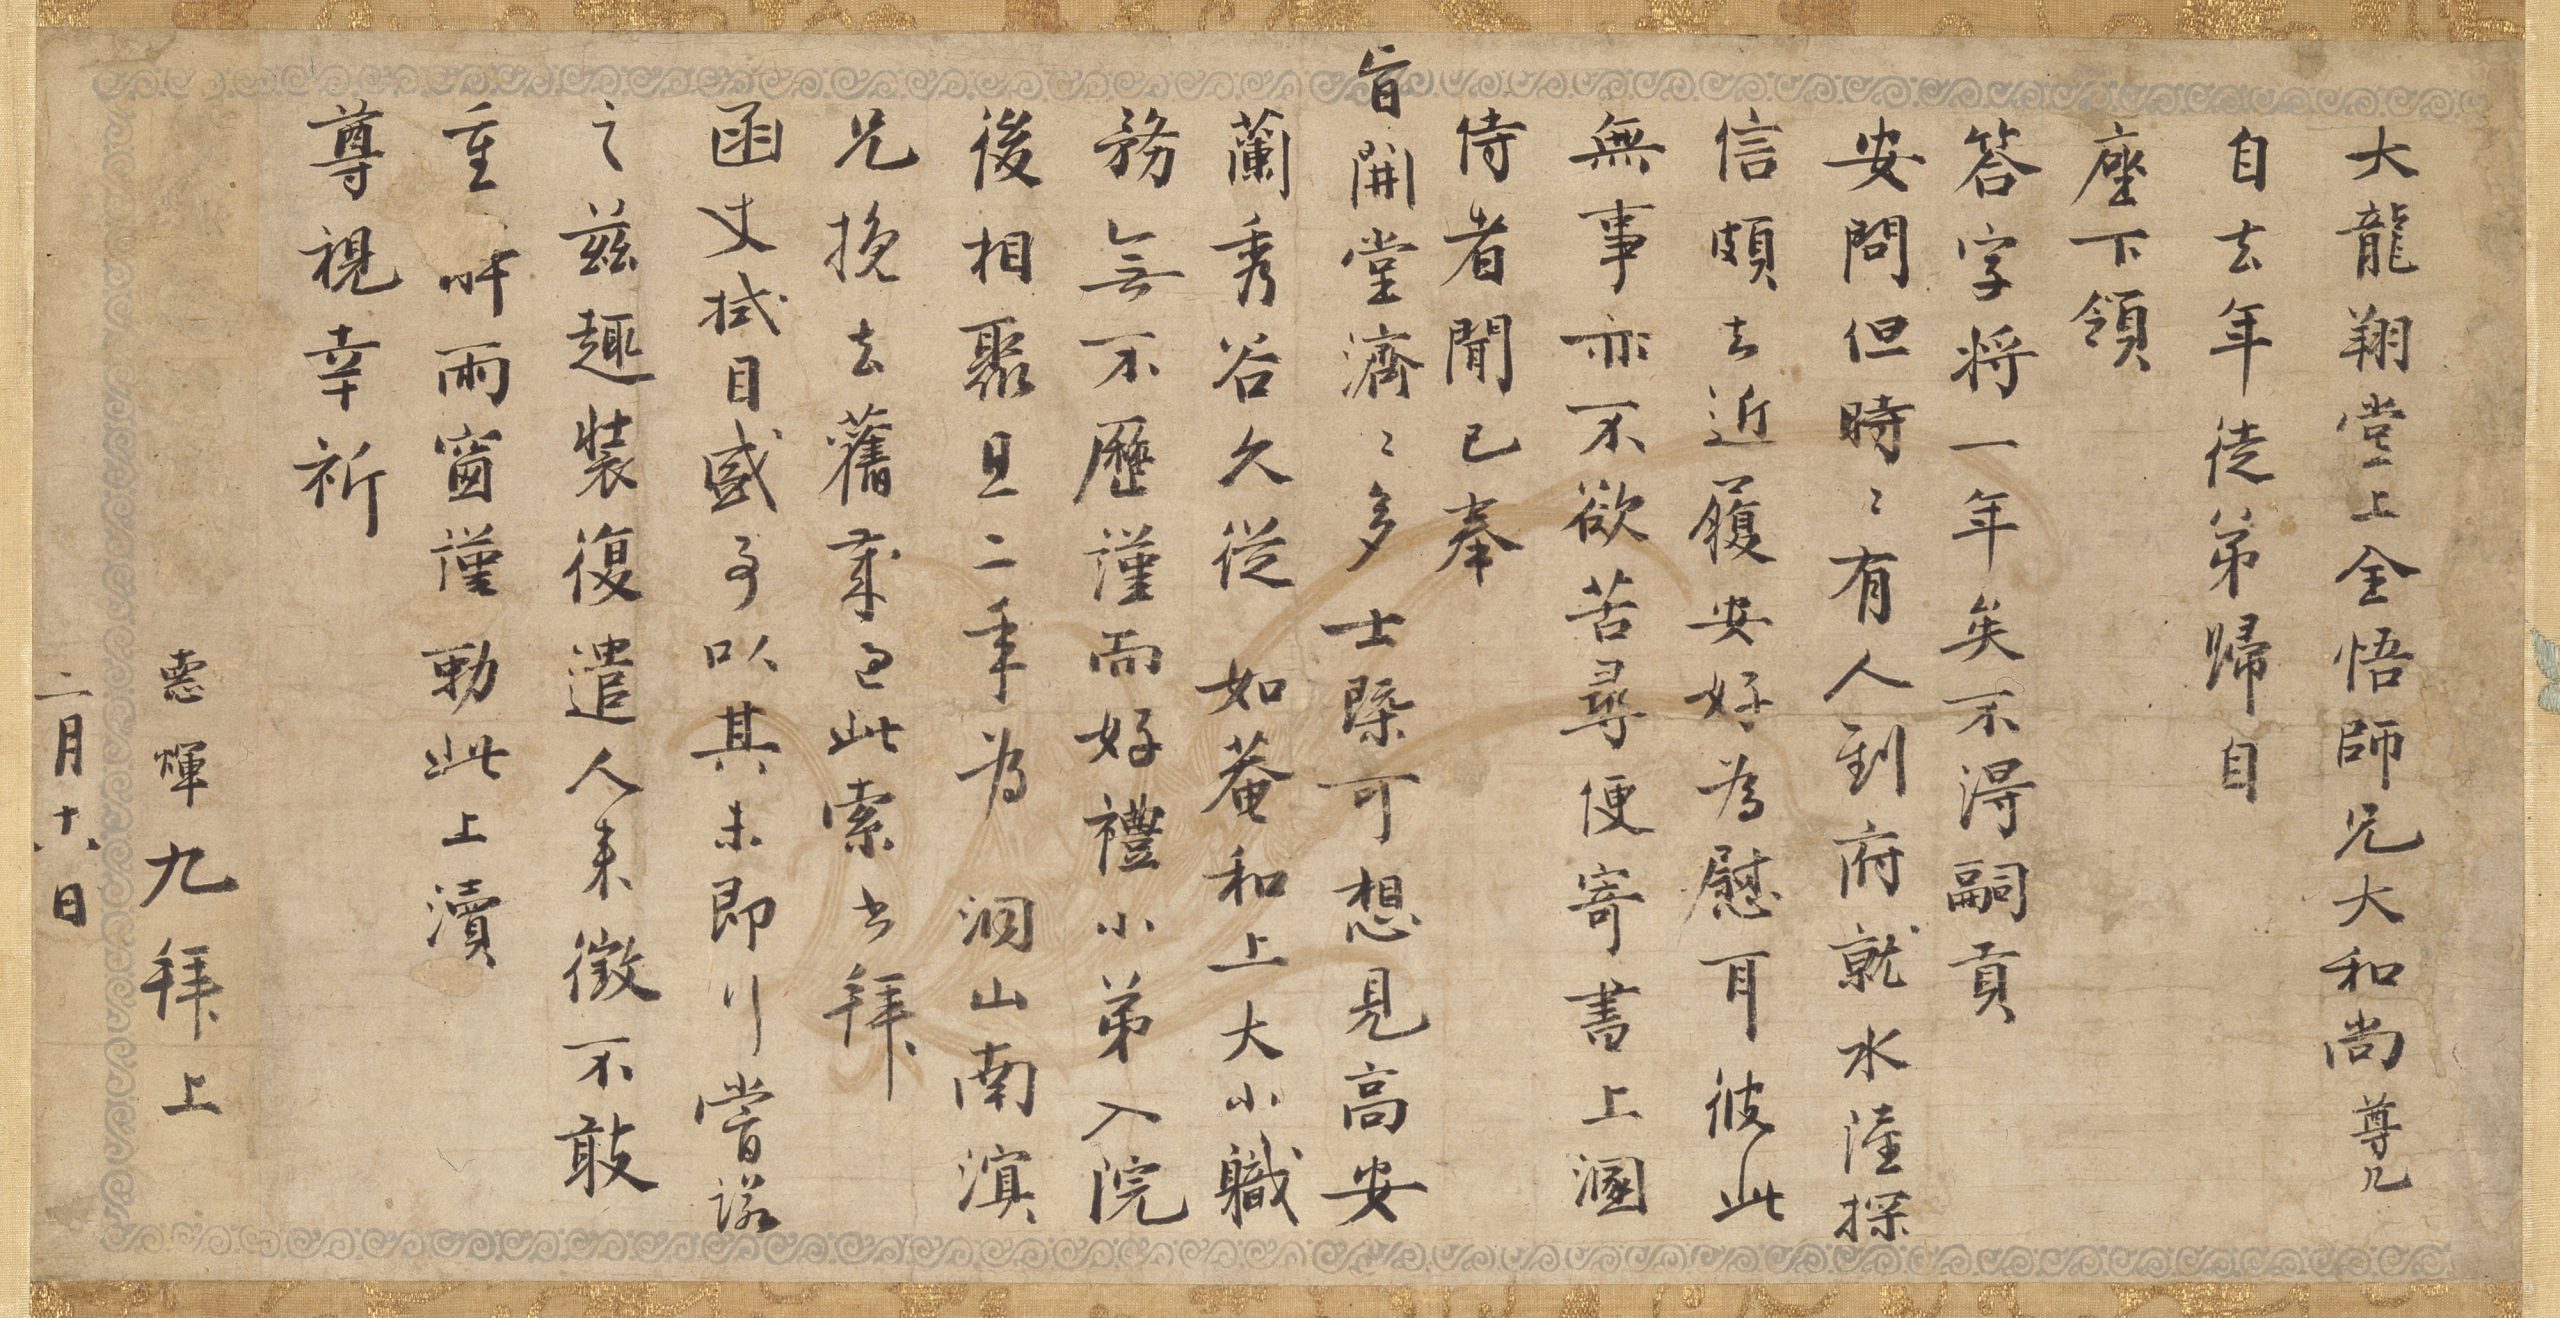 大龍翔堂上全悟師兄大和尚尊几
自去年徒弟歸自
座下領
答字將一年矣不得嗣貢
安問但時〻有人到府就水陸探
信頗去近履安好為慰耳彼此
無事亦不欲苦尋便寄書上溷
侍者聞已奉
旨開堂濟〻多士槩可想見高安
蘭秀谷久從如菴和上大小職
務無不歷謹而好禮小弟入院
後相聚且二年為洞山南滇
兄挽去舊歲已此索书拜
函丈拭目盛事以其未即行嘗諾
之茲趣裝復遣人来徵不敢
重吁雨窗謹勒此上瀆
尊視幸祈
悳煇九拜上
二月十八日